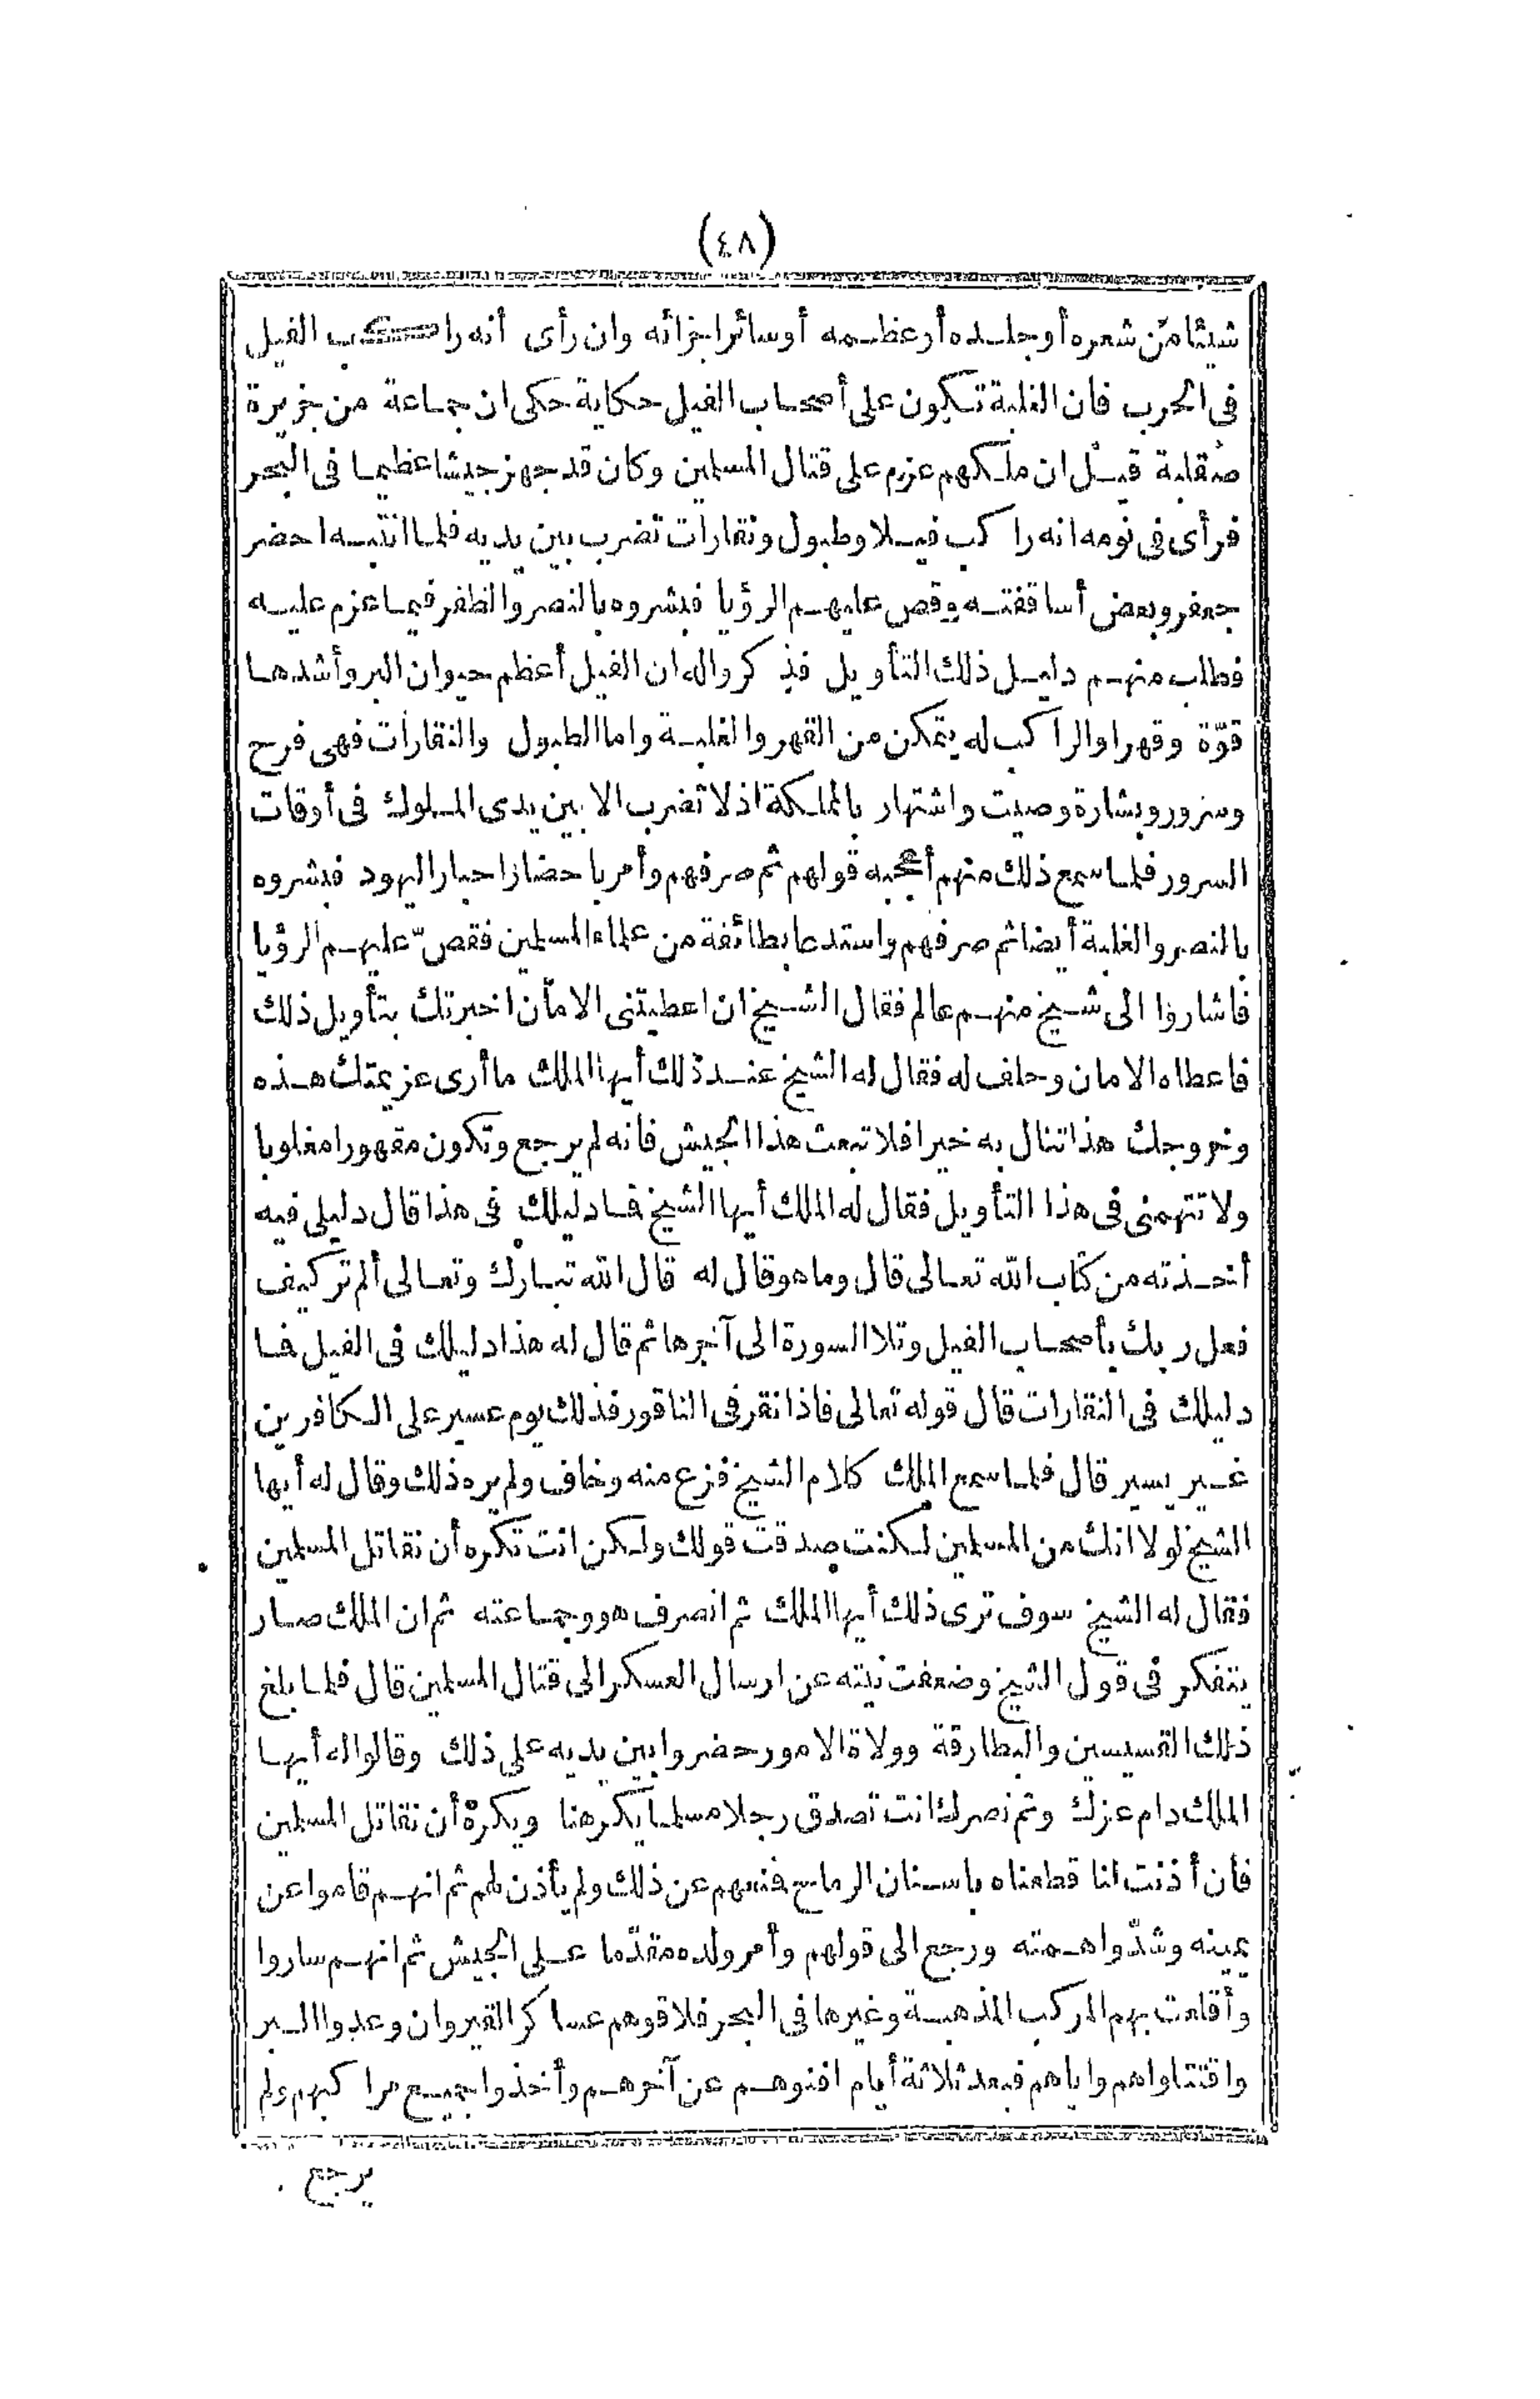 (٤٨)
شيئا من شعره أو جلده أو عظمه أو سائر اجزائه وان رأى أنه راكب الفيل
فى الحرب فان الغلبة تكون على أصحاب الفيل حكاية حكى ان جماعة من جزيرة
صقلية قيل ان ملكهم عزم على قتال المسلمين وكان قد جهز جيشا عظيما فى البحر
فرأى فى نومه انه راكب فيلا وطبول ونقارات تضرب بين يديه فلما انتبه احضر
جعفر وبعض أساقفته وقص عليهم الرؤيا فبشروه بالنصر والظفر فيما عزم عليه
فطلب منهم دليل ذلك التأويل فذكروا له ان الفيل أعظم حيوان البر وأشدها
قوّة وقهرا والراكب له يتمكن من القهر والغلبة واما الطبول والنقارات فهى فرح
وسرور وبشارة وصيت واشتهار بالمملكة اذ لا تضرب الا بين يدى الملوك فى أوقات
السرور فلما سمع ذلك منهم أعجبه قولهم ثم صرفهم وأمر باحضار احبار اليهود فبشروه
بالنصر والغلبة أيضا ثم صرفهم واستدعا بطائفة من علماء المسلمين فقصّ عليهم الرؤيا
فاشاروا الى شيخ منهم عالم فقال الشيخ ان اعطيتنى الامان اخبرتك بتأويل ذلك
فاعطاه الامان وحلف له فقال له الشيخ عند ذلك أيها الملك ما أرى عزيمتك هذه
وخروجك هذا تنال به خيرا فلا تبعث هذا الجيش فانه لم يرجع وتكون مقهورا مغلوبا
ولا تتهمنى فى هذا التأويل فقال له الملك أيها الشيخ فما دليلك فى هذا قال دليلى فيه
أخذته من كتاب الله تعالى قال وما هو قال له قال الله تبارك وتعالى ألم تر كيف
فعل ربك بأصحاب الفيل وتلا السورة الى آخرها ثم قال له هذا دليلك فى الفيل فما
دليلك فى النقارات قال قوله تعالى فاذا نقر فى الناقور فذلك يوم عسير على الكافرين
غير يسير قال فلما سمع الملك كلام الشيخ فزع منه وخاف ولم يره ذلك وقال له أيها
الشيخ لولا انك من المسلمين لكنت صدقت قولك ولكن انت تكره أن نقاتل المسلمين
فقال له الشيخ سوف ترى ذلك أيها الملك ثم انصرف هو وجماعته ثم ان الملك صار
يتفكر فى قول الشيخ وضعفت نيته عن ارسال العسكر الى قتال المسلمين قال فلما بلغ
ذلك القسيسين والبطارقة وولاة الامور حضروا بين يديه على ذلك وقالوا له أيها
الملك دام عزك وتم نصرك انت تصدق رجلا مسلما يكرهنا ويكره أن نقاتل المسلمين
فان أذنت لنا قطعناه باسنان الرماح فنهاهم عن ذلك ولم يأذن لهم ثم انهم قاموا عن
يمينه وشدّوا همته ورجع الى قولهم وأمر ولده مقدّما على الجيش ثم انهم ساروا
وأقلعت بهم المركب المذهبة وغيرها فى البحر فلاقوهم عساكر القيروان وعدوا البر
واقتتلوا هم واياهم فبعد ثلاثة أيام افنوهم عن آخرهم وأخذوا جميع مراكبهم ولم
يرجع